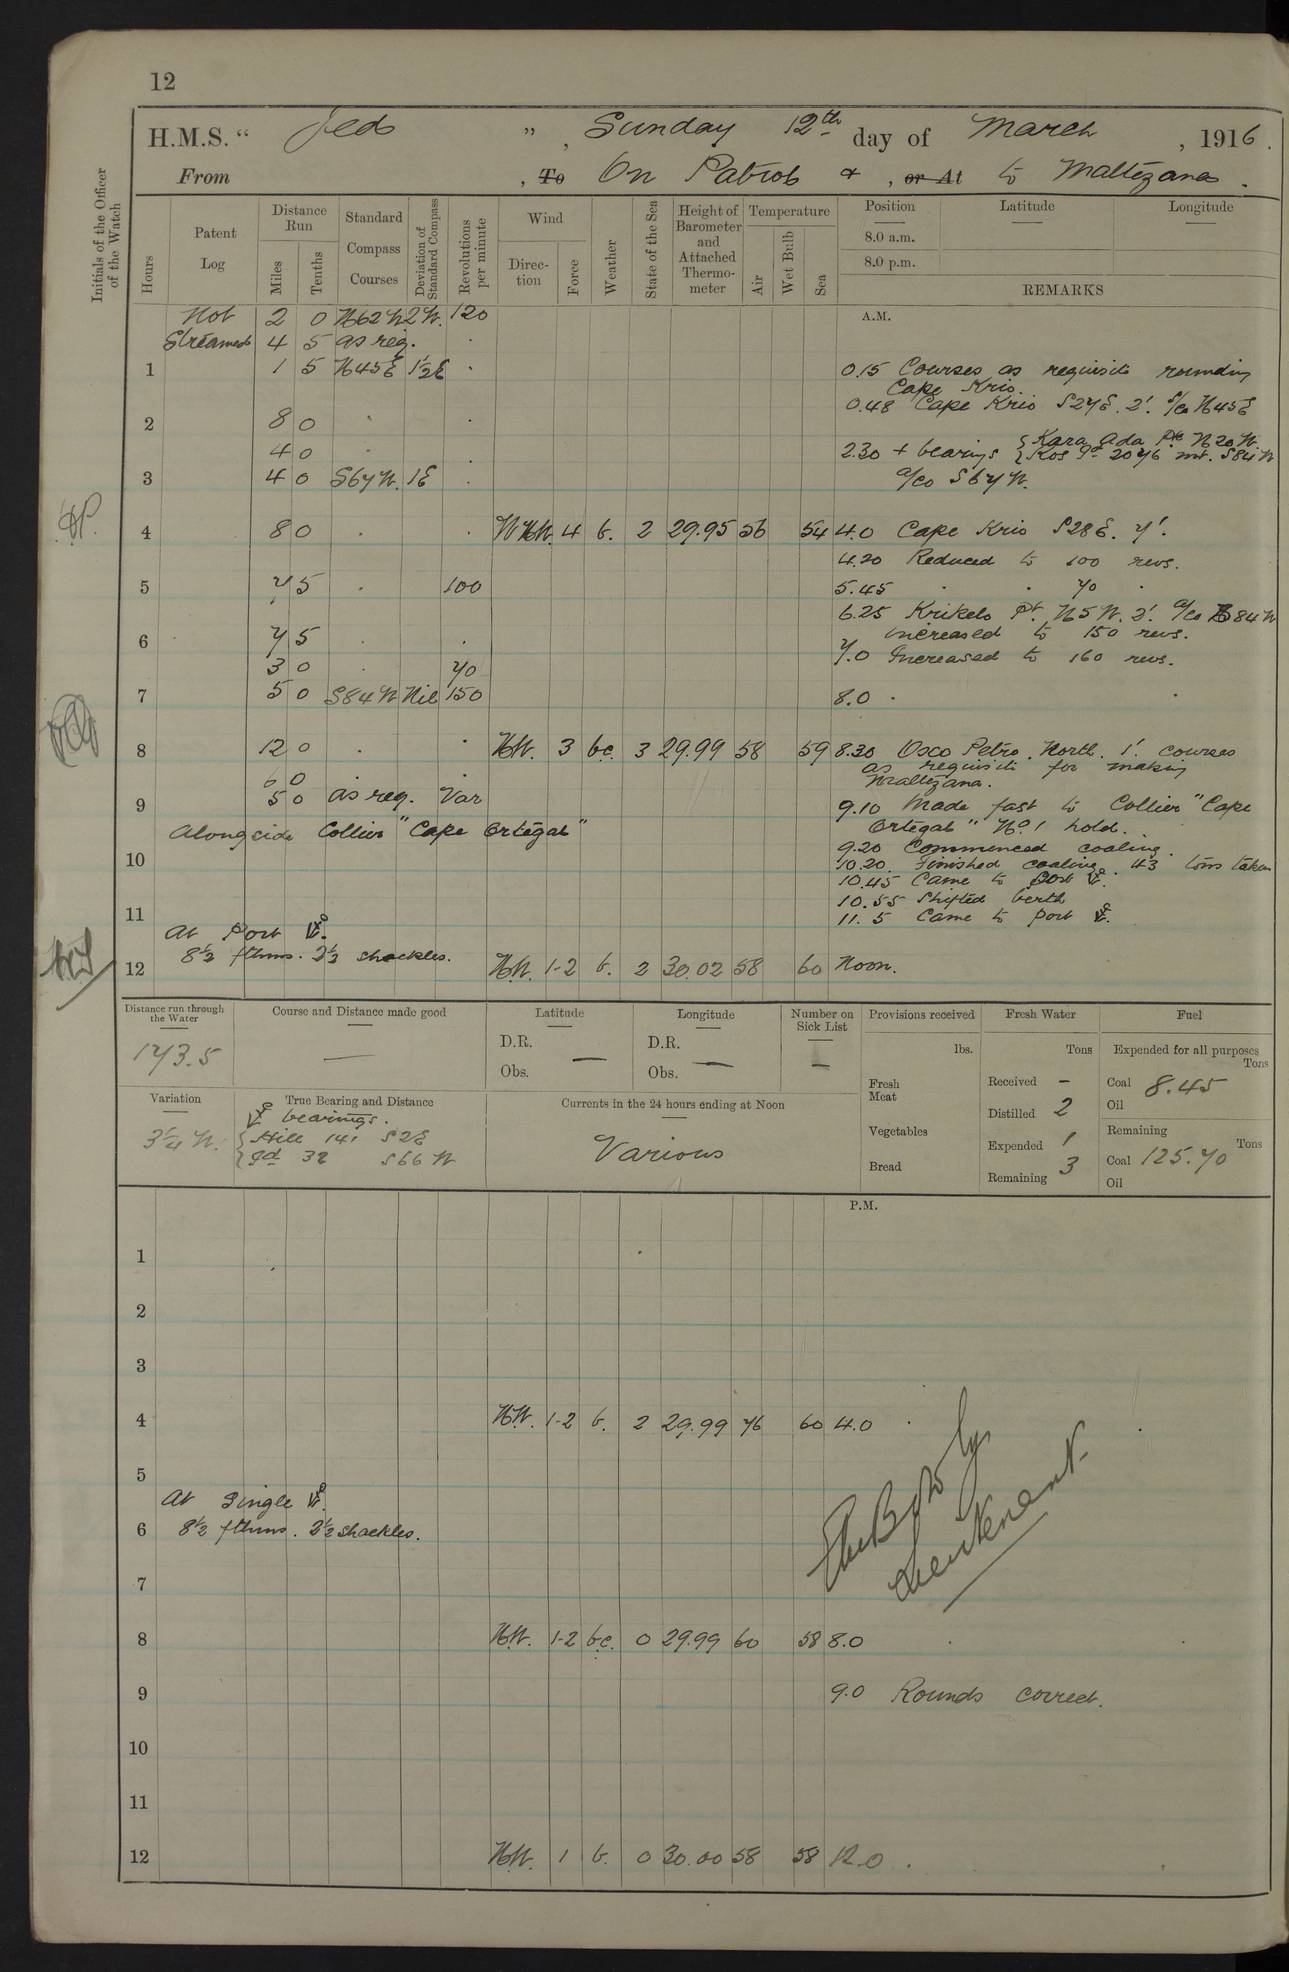 12
H.M.S. “ Jed ”, Sunday 12th day of March, 1916.
From , To On Patrol & , or At to Maltezana.
Initials of the Officer of the Watch
Hours
Patent Log
Distance Run
Miles
Tenths
Standard Compass Courses
Deviation of Standard Compass
Revolutions per minute
Wind
Direction
Force
Weather
State of the Sea
Height of Barometer and Attached Thermometer
Temperature
Air
Wet Bulb
Sea
Position
Latitude
Longitude
8.0 a.m.
8.0 p.m.
REMARKS
A.M.
Not 2 0 N62W 2W. 120
Streamed 4 5 as req. .
1 1 5 N45E 1/2E . 0.15 Courses as requisite rounding
Cape Krio.
0.48 Cape Krio S27E. 2'. s/co N45E
2 8 0 . .
4 0 . 2.30 + bearings { Kara Ada Pk N20W.
{ Kos Id 2076 mt. S84W
3 4 0 S67W. 1E . a/co S67W.
4 8 0 . . WNW. 4 b. 2 29.95 56 54 4.0 Cape Krio S28E. 7'.
4.20 Reduced to 100 revs.
5 7 5 . 100 5.45 . . 70 .
6.25 Krikelo Pt. N5W. 2'. a/co S84W
6 7 5 . . increased to 150 revs.
3 0 . 70 7.0 Increased to 160 revs.
7 5 0 S84W Nil 150 8.0 .
8 12 0 . . NW. 3 bc. 3 29.99 58 59 8.30 Osco Petro. North. 1'. courses
as requisite for making
6 0 . Maltezana.
9 5 0 as req. Var 9.10 Made fast to Collier "Cape
Alongside Collier "Cape Ortegal" Ortegal" No. 1 hold.
9.20 Commenced coaling.
10 10.20. Finished coaling. 43 tons taken
10.45 Came to port ⚓.
10.55 Shifted berth
11 11.5 Came to port ⚓.
At Port ⚓.
8½ fthms. 2½ shackles.
12 NW. 1-2 b. 2 30.02 58 60 Noon.
Distance run through the Water
173.5
Course and Distance made good
—
Latitude
D.R.
Obs. —
Longitude
D.R.
Obs. —
Number on Sick List
—
Provisions received
lbs.
Fresh Meat
Vegetables
Bread
Fresh Water
Tons
Received —
Distilled 2
Expended 1
Remaining 3
Fuel
Expended for all purposes
Tons
Coal 8.45
Oil
Remaining
Tons
Coal 125.70
Oil
Variation
3¼ W.
True Bearing and Distance
⚓ bearings.
{ Hill 141 S2E
{ Id 32 S66W
Currents in the 24 hours ending at Noon
Various
P.M.
1
2
3
4 NW. 1-2 b. 2 29.99 76 60 4.0 .
5
At Single ⚓.
6 8½ fthms. 2½ shackles.
Lieutenant
7
8 NW. 1-2 bc. 0 29.99 60 58 8.0
9 9.0 Rounds correct.
10
11
12 NW. 1 b. 0 30.00 58 58 12.0 .